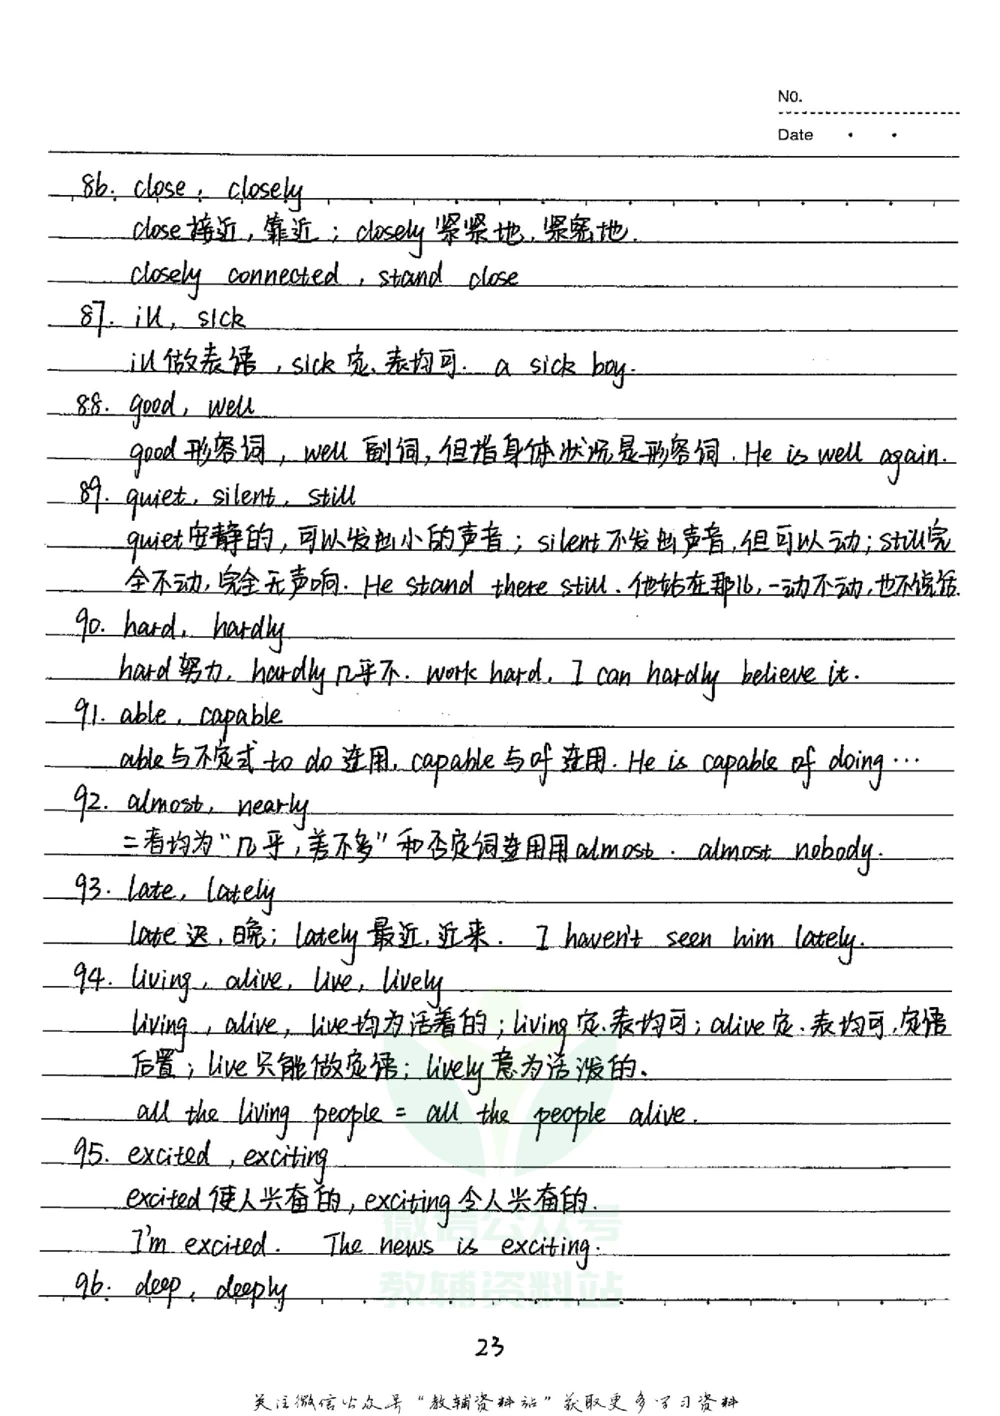 NO.
Date
86. close, closely
close接近,靠近; closely紧紧地,紧密地.
closely connected, stand close
87. ill, sick
ill做表语,sick定、表均可. a sick boy.
88. good, well
good形容词,well副词,但指身体状况是形容词. He is well again.
89. quiet, silent, still
quiet安静的,可以发出小的声音; silent不发出声音,但可以动; still完
全不动,完全无声响. He stand there still. 他站在那儿,一动不动,也不说话.
90. hard, hardly
hard努力, hardly几乎不. work hard, I can hardly believe it.
91. able, capable
able与不定式to do连用, capable与of连用. He is capable of doing…
92. almost, nearly
二者均为“几乎,差不多”和否定词连用用almost. almost nobody.
93. late, lately
late迟,晚; lately最近,近来. I haven't seen him lately.
94. living, alive, live, lively
living, alive, live均为活着的; living定、表均可; alive定、表均可,定语
后置; live只能做定语; lively意为活泼的.
all the living people = all the people alive.
95. excited, exciting
excited使人兴奋的, exciting令人兴奋的.
I'm excited. The news is exciting.
96. deep, deeply
微信公众号
教辅资料站
23
关注微信公众号“教辅资料站”获取更多学习资料